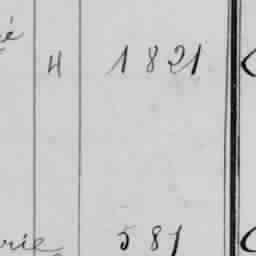 é
4 1821
rie 581